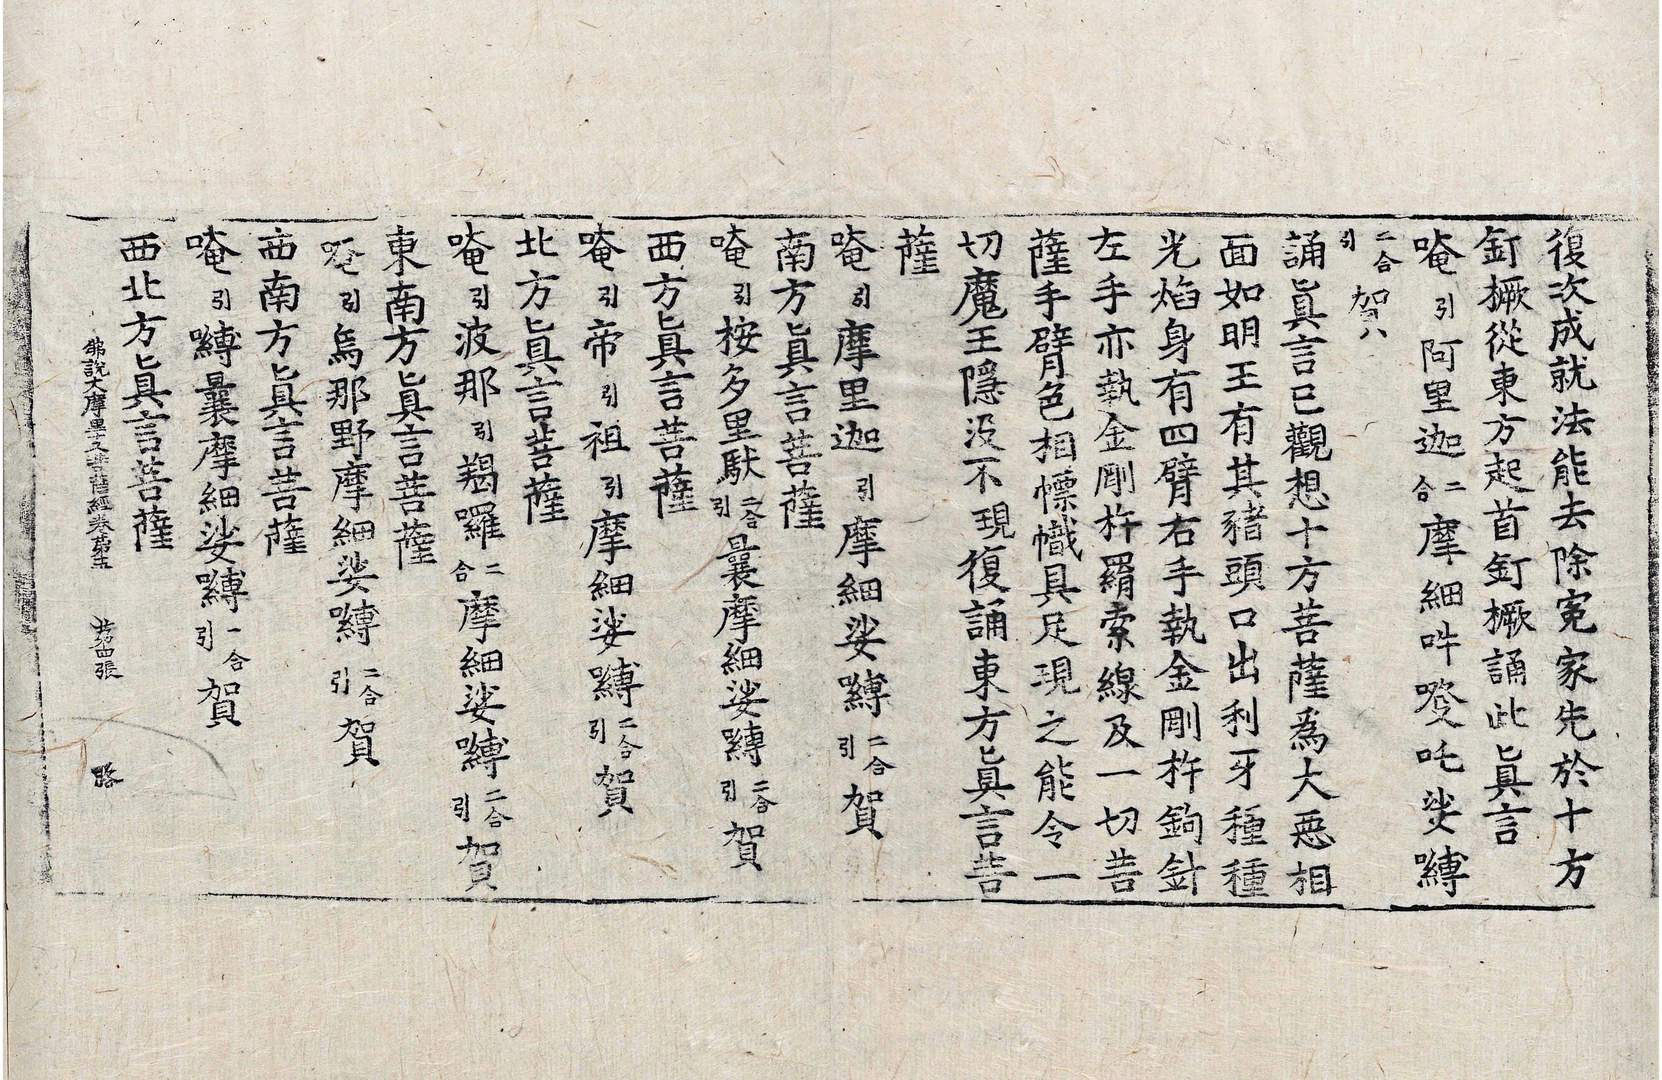 復次成就法能去除寃家先於十方
釘橛從東方起首釘橛誦此眞言
唵引阿里迦二合摩細吽㘕吒娑嚩
二合引賀八
誦眞言已觀想十方菩薩爲大惡相
面如明王有其豬頭口出利牙種種
光焰身有四臂右手執金剛杵鉤針
左手亦執金剛杵羂索線及一切菩
薩手臂色相幖幟具足現之能令一
切魔王隱没不現復誦東方眞言菩
薩
唵引摩里迦引摩細娑嚩二合引賀
南方眞言菩薩
唵引桉多里馱二合引曩摩細娑嚩二合引賀
西方眞言菩薩
唵引帝引祖引摩細娑嚩二合引賀
北方眞言菩薩
唵引波那引羯囉二合摩細娑嚩二合引賀
東南方眞言菩薩
唵引烏那野摩細娑嚩二合引賀
西南方眞言菩薩
唵引嚩曩摩細娑嚩一合引賀
西北方眞言菩薩
佛說大摩里支菩薩經卷第五 廿四張 路